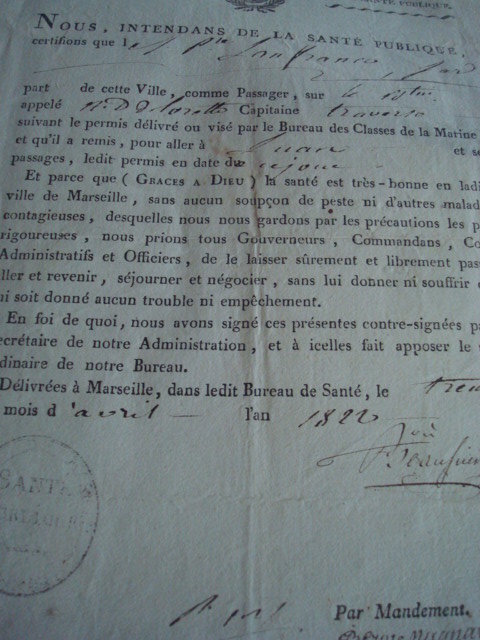 SANTÉ PUBLIQUE,
NOUS, INTENDANS DE LA SANTÉ PUBLIQUE,
certifions que
part de cette Ville, comme Passager, sur le
appelé Capitaine traverso
suivant le permis délivré ou visé par le Bureau des Classes de la Marine
et qu'il a remis, pour aller à et se
passages, ledit permis en date du
Et parce que (GRACES A DIEU) la santé est très-bonne en ladi
ville de Marseille, sans aucun soupçon de peste ni d'autres malad
contagieuses, desquelles nous nous gardons par les précautions les p
rigoureuses, nous prions tous Gouverneurs, Commandans, Co
Administratifs et Officiers, de le laisser sûrement et librement pas
ller et revenir, séjourner et négocier, sans lui donner ni souffrir
ui soit donné aucun trouble ni empêchement.
En foi de quoi, nous avons signé ces présentes contre-signées pa
ecrétaire de notre Administration, et à icelles fait apposer le
dinaire de notre Bureau.
Délivrées à Marseille, dans ledit Bureau de Santé, le
mois d'avril l'an 1822
SANTÉ
Par Mandement.